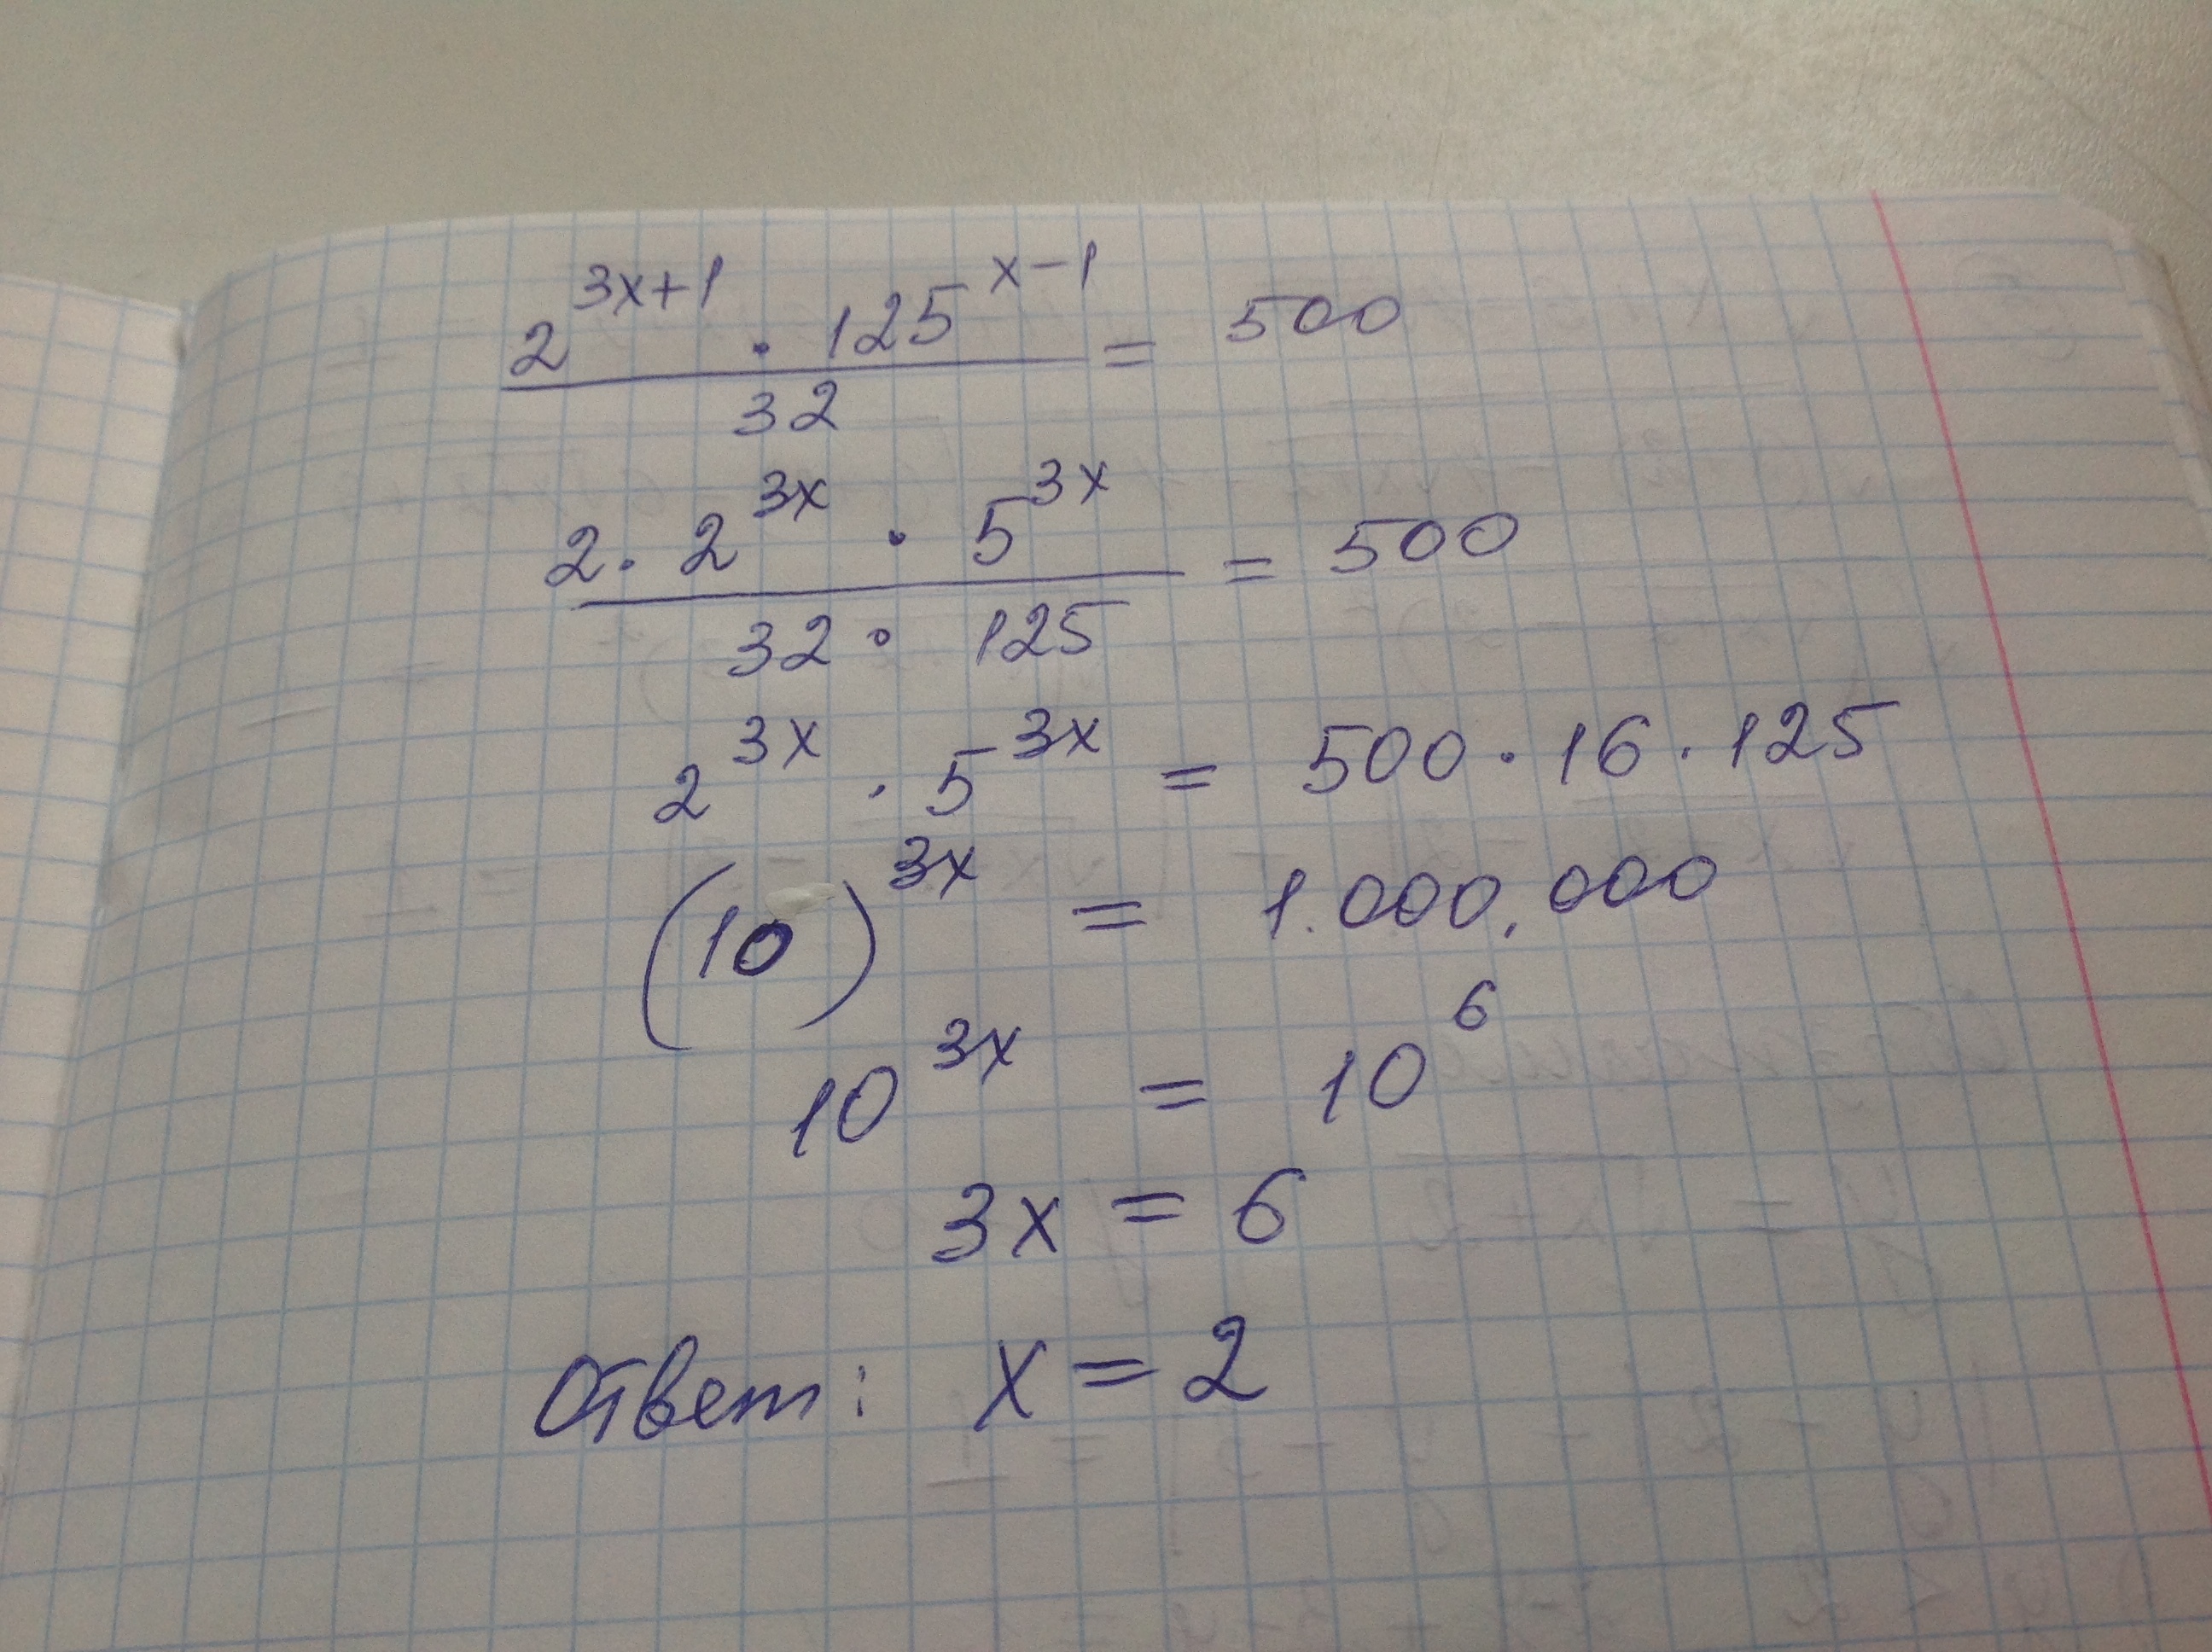 2^(3x+1) · 125^(x-1) / 32 = 500
2 · 2^(3x) · 5^(3x) / 32 · 125 = 500
2^(3x) · 5^(3x) = 500 · 16 · 125
(10)^(3x) = 1.000.000
10^(3x) = 10^6
3x = 6
Ответ: x = 2